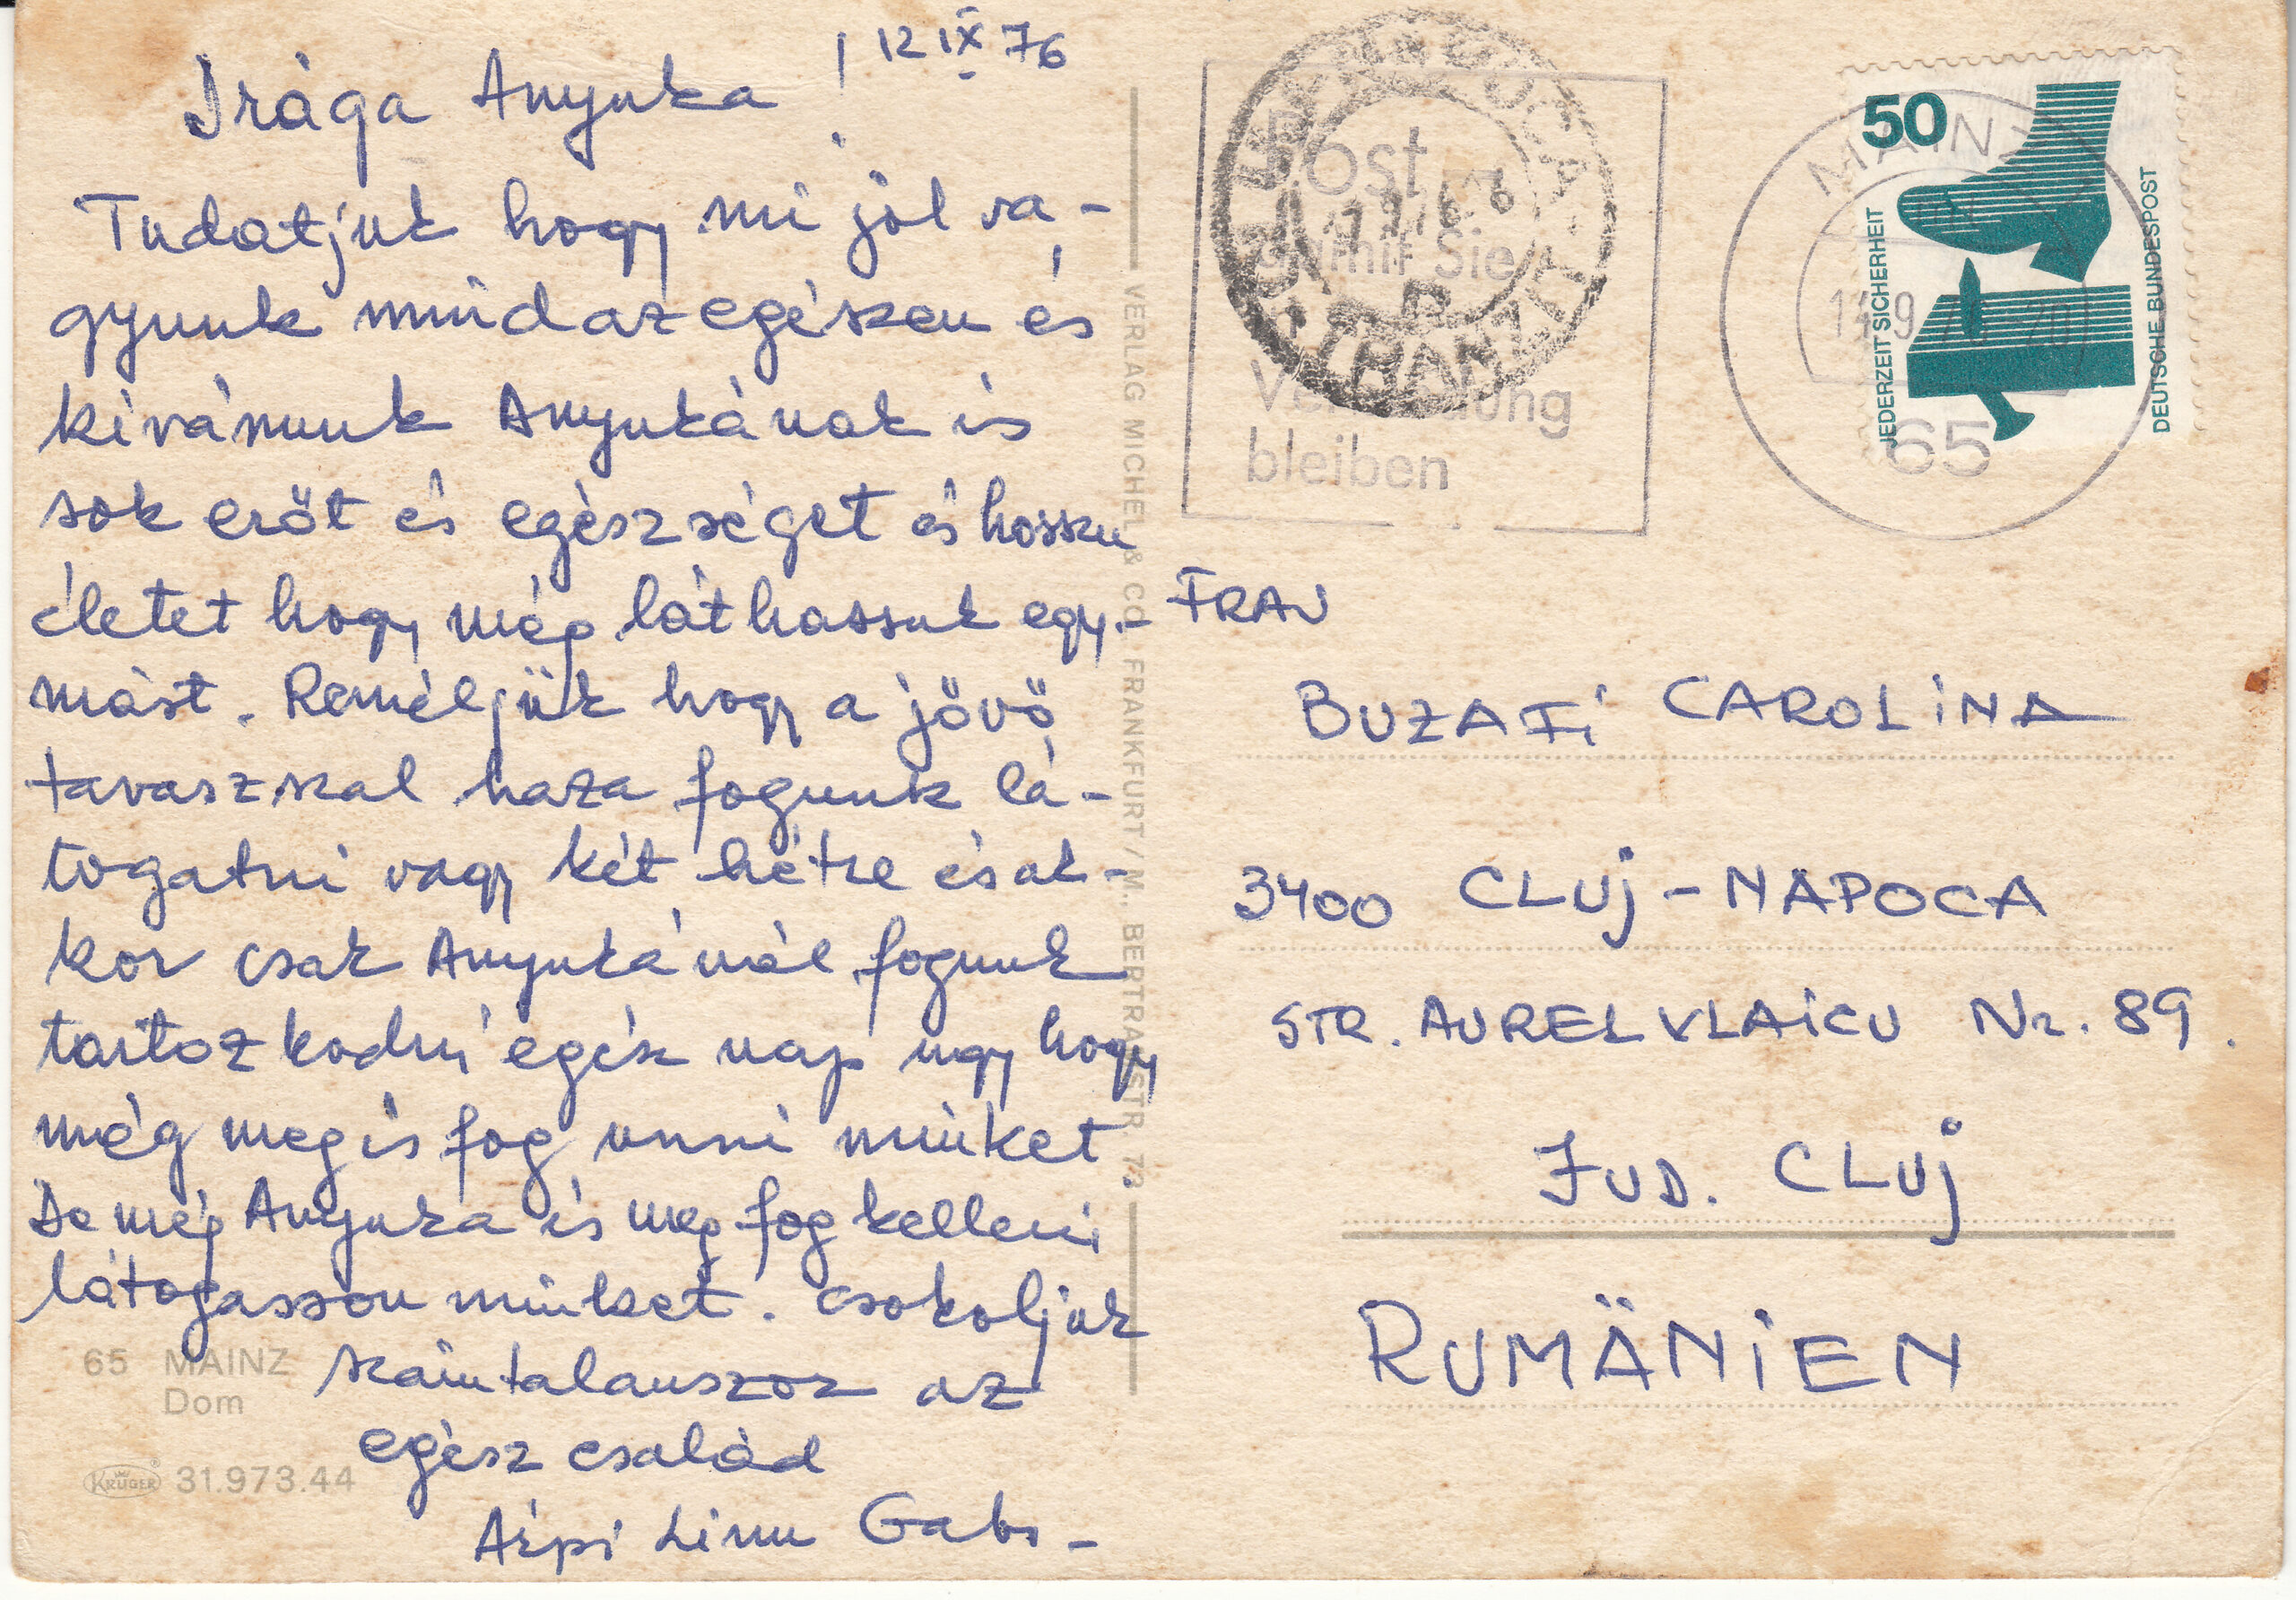 12 IX 76
Drága Anyuka!
Tudatjuk hogy mi jól va-
gyunk mindazegészen és
kivánunk Anyukának is
sok erőt és egészséget és hosszu
életet hogy még láthassuk egy-
mást. Reméljük hogy a jövő
tavaszszal haza fogunk lá-
togatni vagy két hétre és ak-
kor csak Anyukánál fogunk
tartozkodni egész nap ugy hogy
még meg is fog unni minket.
De még Anyuka is meg fog kelleni
látogasson minket. Csokoljuk
számtalanszor az
egész család
Árpi Linu Gabi-
65 MAINZ
Dom
KRÜGER 31.973.44
VERLAG MICHEL & CO. FRANKFURT / M., BERTRAMSTR. 73
Post
damit Sie
Verbindung
bleiben
CLUJ-NAPOCA
TRANZIT
MAINZ
65
50
JEDERZEIT SICHERHEIT
DEUTSCHE BUNDESPOST
FRAU
BUZAFi CAROLiNA
3400 CLUj-NAPOCA
STR. AUREL VLAiCU Nr. 89.
JUD. CLUj
RUMÄNiEN